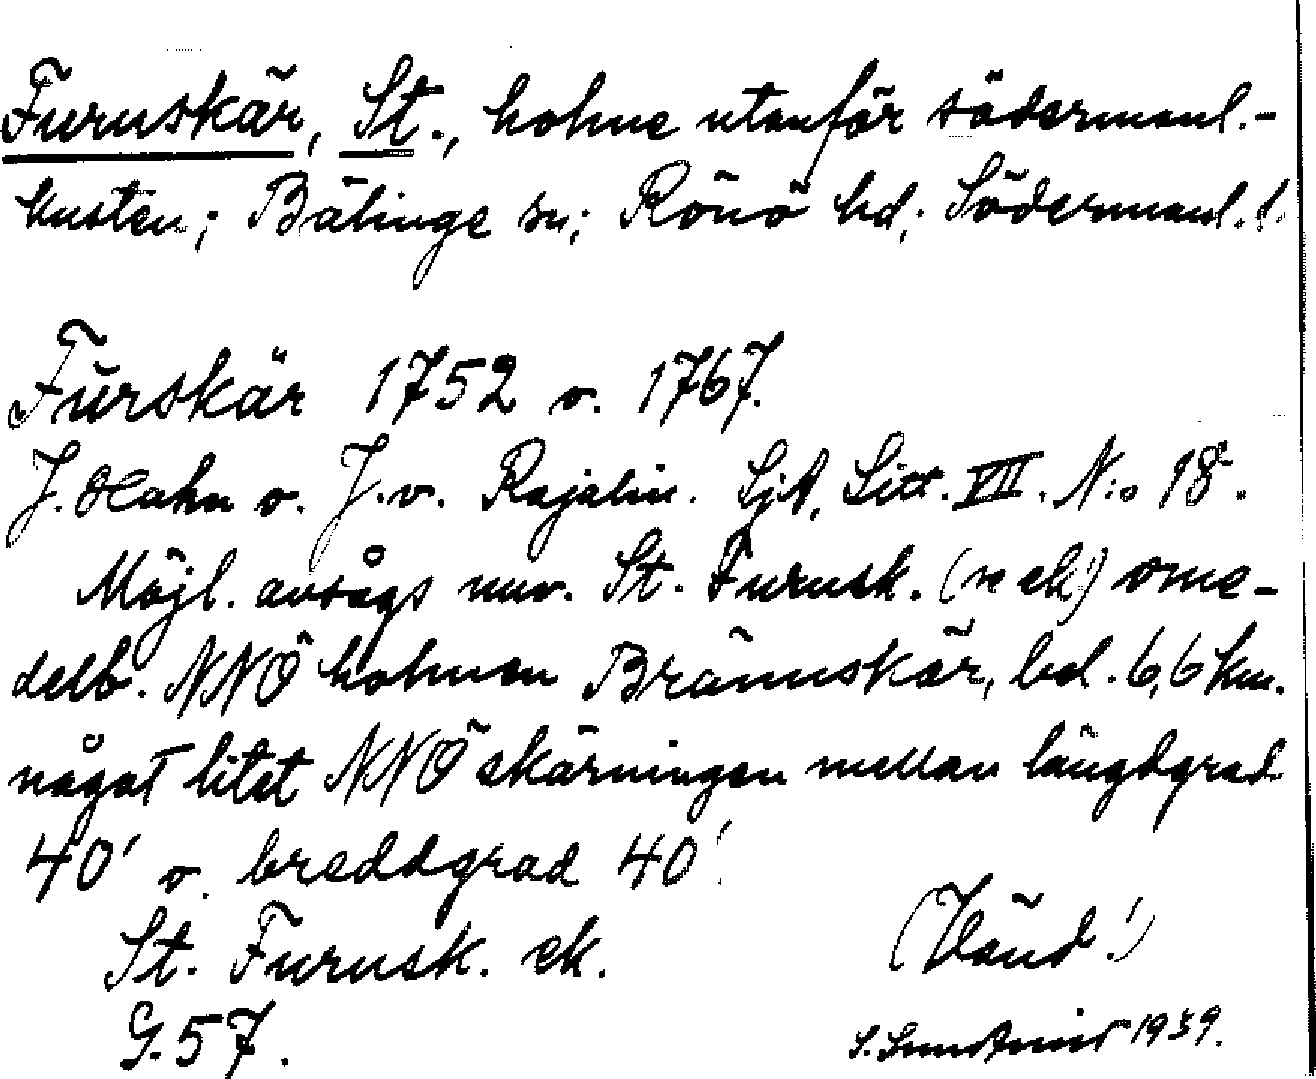 Furuskär, St., holme utanför södermanl.-
kusten; Bälinge sn; Rönö hd; Södermanl. l.
Furskär 1752 o. 1767.
J. Hahn o. J. v. Rajalin. SjA, Litt. VII. N:o 18.
Möjl. avsågs nuv. St. Furusk. (n ek) ome-
delb. NNÖ holmen Brännskär, bel. 6,6 km.
något litet NNÖ skärningen mellan längdgrad
40′ o. breddgrad 40′.
St. Furusk. ek.
G. 57.
(Vänd!)
1939.